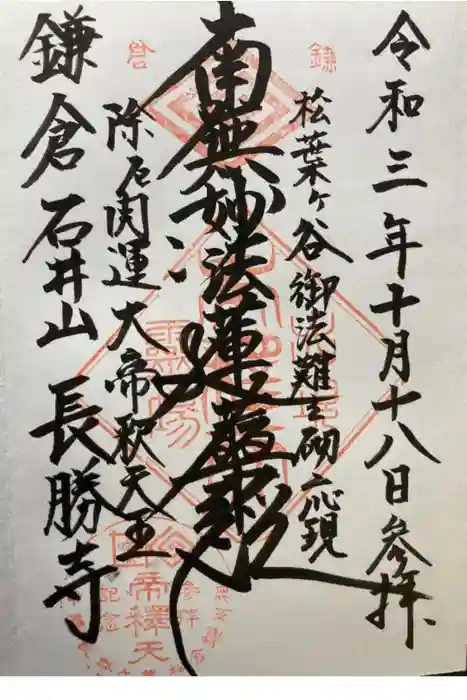 令和三年十月十八日参拝
松葉ヶ谷御法難之砌応現
南無妙法蓮華経
除厄関運大帝釈天王
鎌倉石井山長勝寺
鎌
倉
霊場
帝釋天
参拝
記念